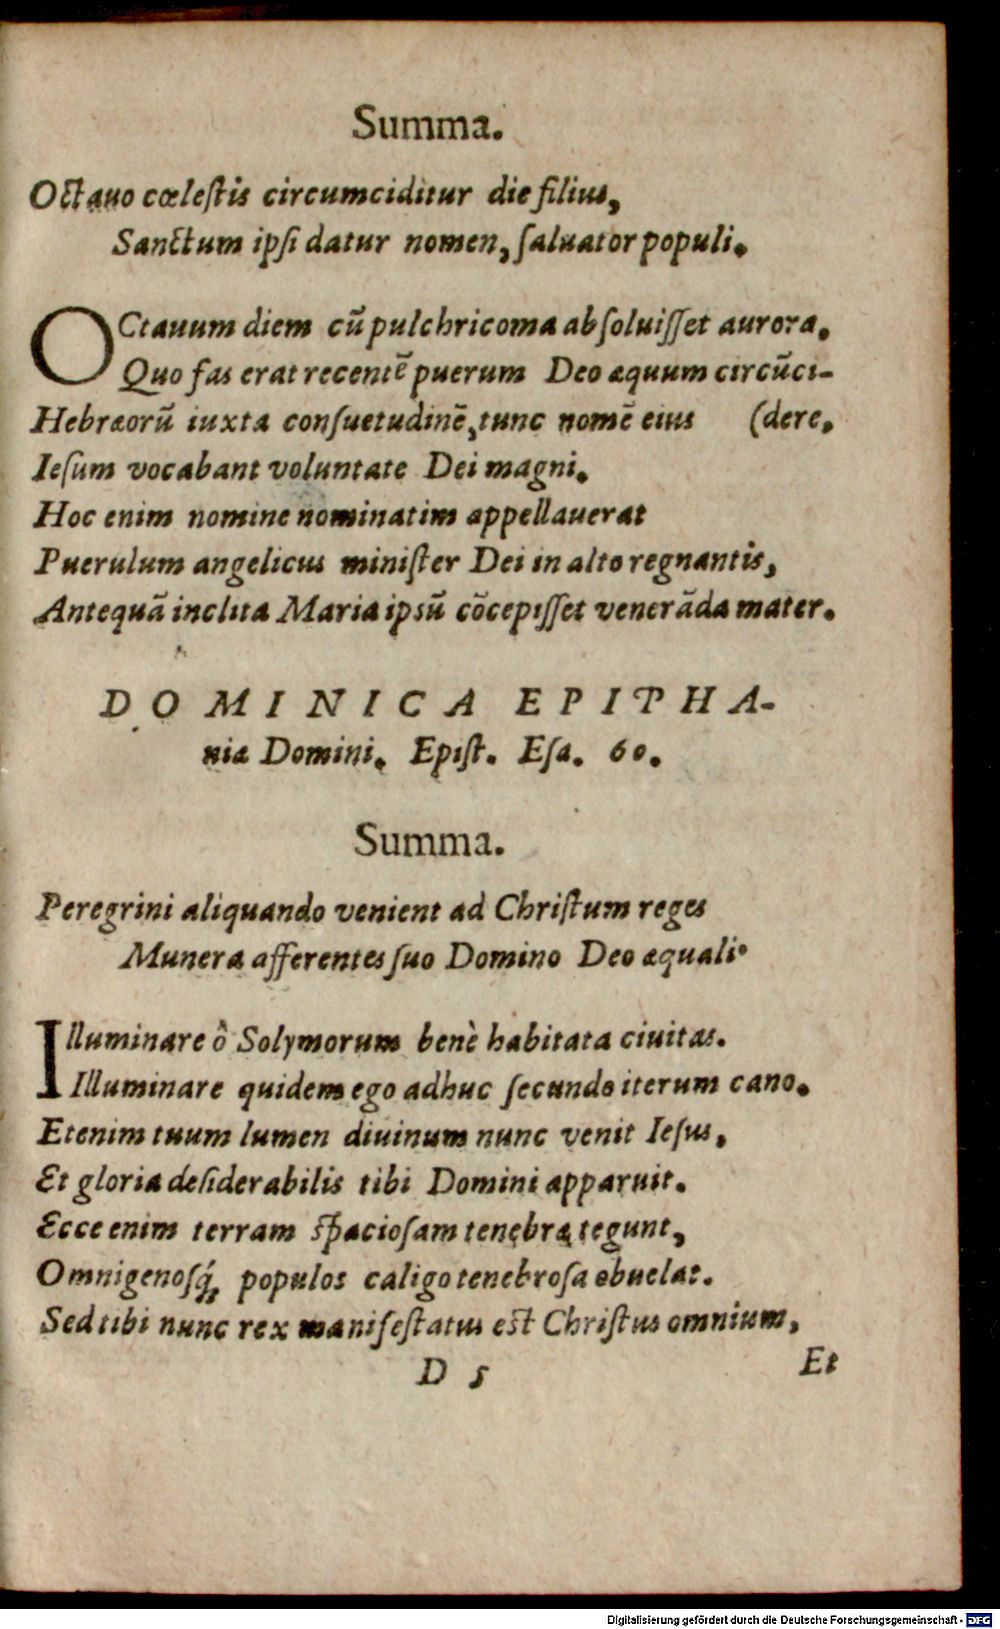 Summa.
Octauo cœleſtis circumciditur die filius,
Sanctum ipſi datur nomen, ſaluator populi.
OCtauum diem cũ pulchricoma abſoluiſſet aurora.
Quo fas erat recentẽ puerum Deo æquum circũci-
Hebræorũ iuxta conſuetudinẽ, tunc nomẽ eius (dere,
Ieſum vocabant voluntate Dei magni.
Hoc enim nomine nominatim appellauerat
Puerulum angelicus miniſter Dei in alto regnantis,
Antequã inclita Maria ipsũ cõcepiſſet venerãda mater.
DOMINICA EPIPHA-
niæ Domini. Epiſt. Eſa. 60.
Summa.
Peregrini aliquando venient ad Chriſtum reges
Munera afferentes ſuo Domino Deo æquali.
Illuminare ô Solymorum benè habitata ciuitas.
Illuminare quidem ego adhuc ſecundo iterum cano.
Etenim tuum lumen diuinum nunc venit Ieſus,
Et gloria deſiderabilis tibi Domini apparuit.
Ecce enim terram ſpacioſam tenebræ tegunt,
Omnigenoſq́; populos caligo tenebroſa obuelat.
Sed tibi nunc rex manifeſtatus eſt Chriſtus omnium,
D 5 Et
Digitalisierung gefördert durch die Deutsche Forschungsgemeinschaft - DFG